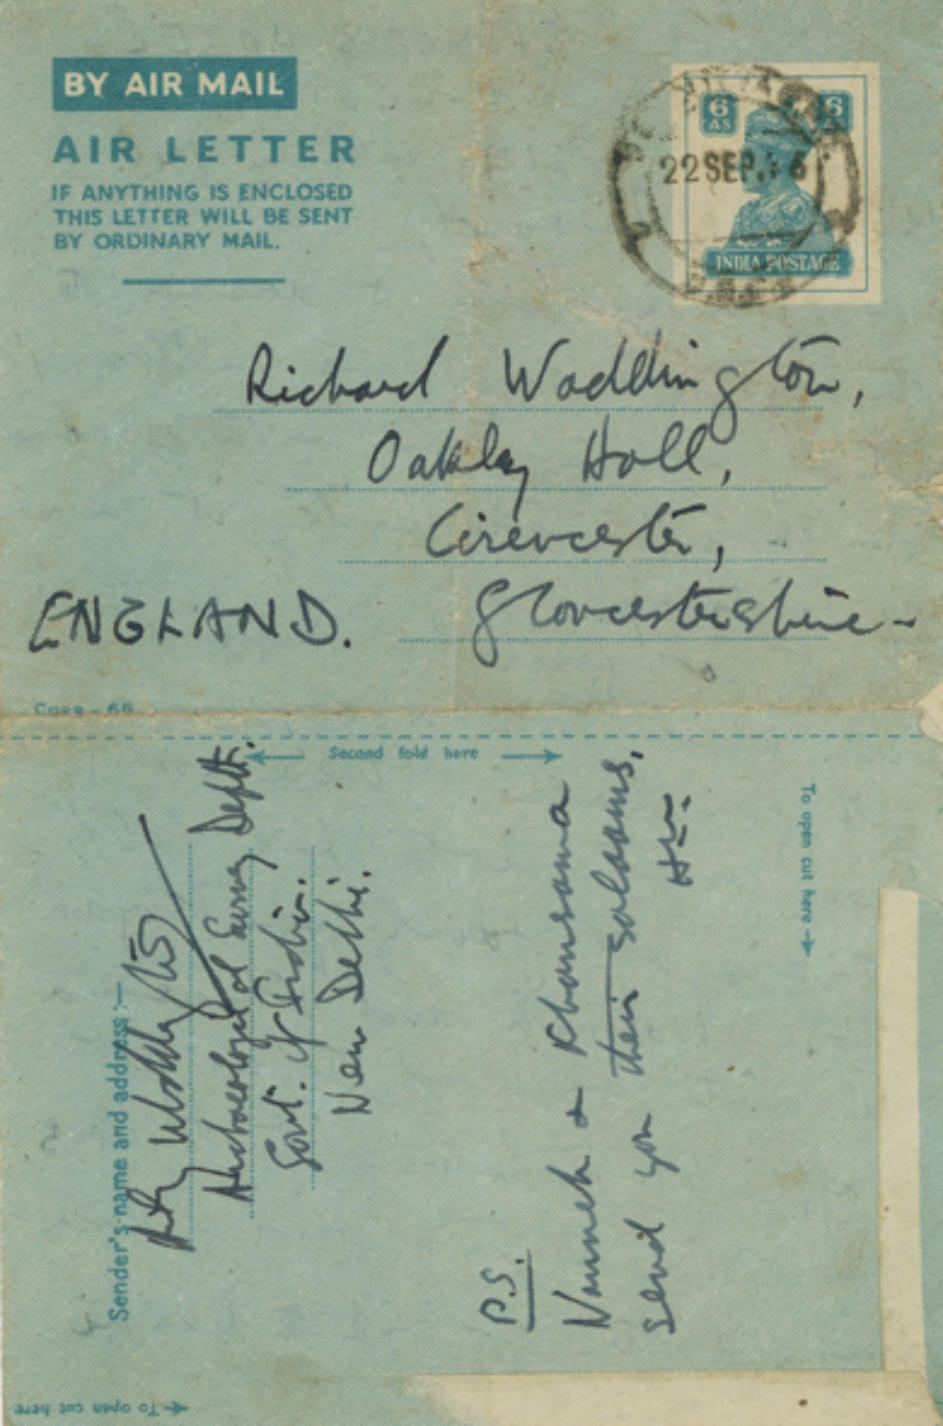 BY AIR MAIL
AIR LETTER
IF ANYTHING IS ENCLOSED
THIS LETTER WILL BE SENT
BY ORDINARY MAIL.
6 AS
6 AS
22 SEP.
INDIA POSTAGE
Richard Waddington,
Oakley Hall,
Cirencester,
Gloucestershire-
ENGLAND.
CORR-66
Second fold here
To open cut here
Sender's name and address:—
Archaeological Survey Deptt.
Govt. of India.
New Delhi.
P.S.
& Khansama
send you their salaams,
To open cut here